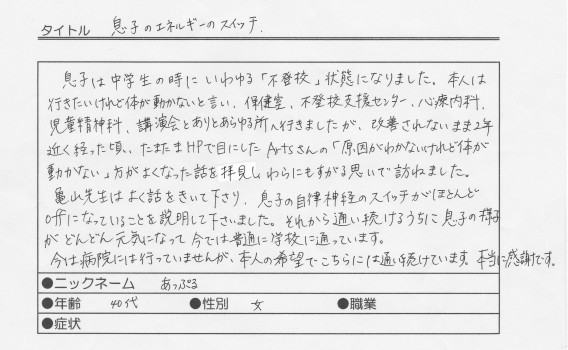 タイトル 息子のエネルギーのスイッチ.
息子は中学生の時にいわゆる「不登校」状態になりました。本人は
行きたいけれど体が動かないと言い、保健室、不登校支援センター、心療内科、
児童精神科、講演会とありとあらゆる所へ行きましたが、改善されないまま2年
近く経った頃、たまたまHPで目にしたArtsさんの「原因がわからないけれど体が
動かない」方がよくなった話を拝見し、わらにもすがる思いで訪ねました。
亀山先生はよく話をきいて下さり、息子の自律神経のスイッチがほとんど
offになっていることを説明して下さいました。それから通い続けるうちに息子の様子
がどんどん元気になって今では普通に学校に通っています。
今は病院には行っていませんが、本人の希望でこちらには通い続けています。本当に感謝です。
●ニックネーム あっぷる
●年齢 40代 ●性別 女 ●職業
●症状